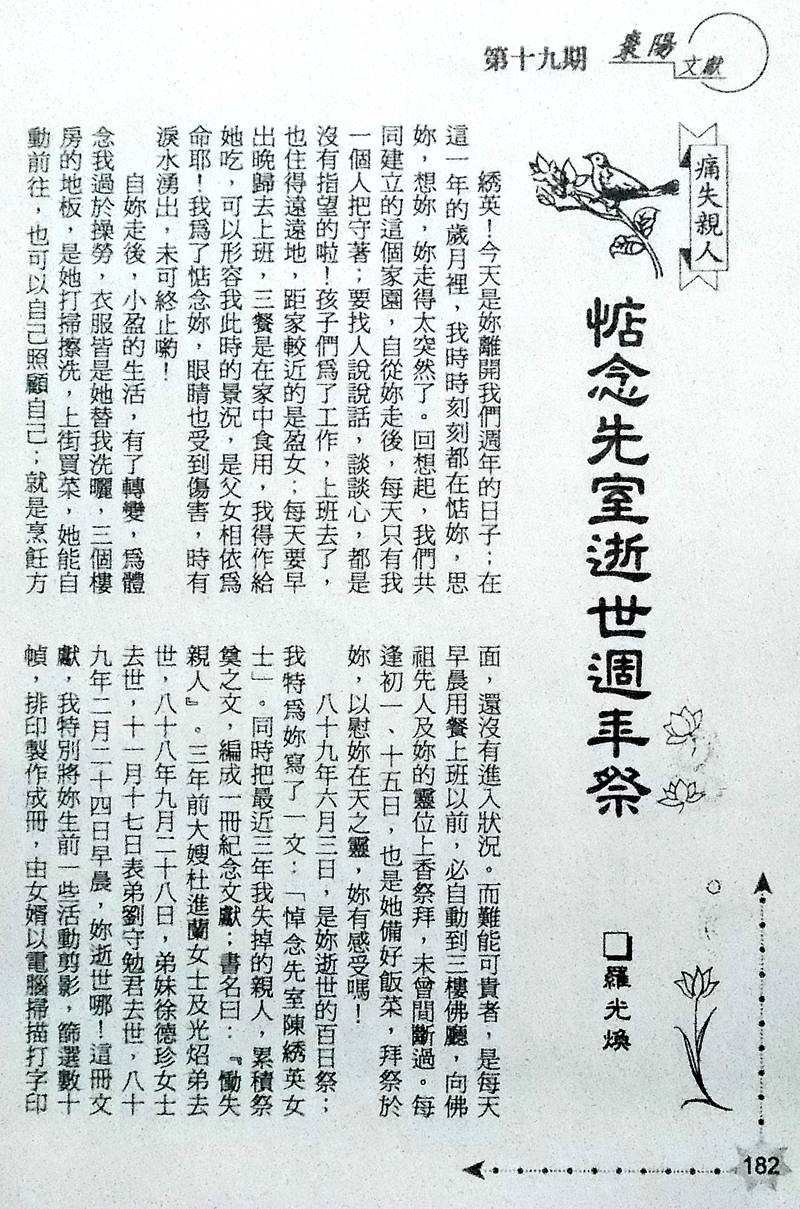 第十九期
棗陽
文獻
痛失親人
惦念先室逝世週年祭
□羅光煥
綉英！今天是妳離開我們週年的日子；在
這一年的歲月裡，我時時刻刻都在惦妳，思
妳，想妳，妳走得太突然了。回想起，我們共
同建立的這個家園，自從妳走後，每天只有我
一個人把守著；要找人說說話，談談心，都是
沒有指望的啦！孩子們爲了工作，上班去了，
也住得遠遠地，距家較近的是盈女；每天要早
出晚歸去上班，三餐是在家中食用，我得作給
她吃，可以形容我此時的景況，是父女相依爲
命耶！我爲了惦念妳，眼睛也受到傷害，時有
淚水湧出，未可終止喲！
自妳走後，小盈的生活，有了轉變，爲體
念我過於操勞，衣服皆是她替我洗曬，三個樓
房的地板，是她打掃擦洗，上街買菜，她能自
動前往，也可以自己照顧自己；就是烹飪方
面，還沒有進入狀況。而難能可貴者，是每天
早晨用餐上班以前，必自動到三樓佛廳，向佛
祖先人及妳的靈位上香祭拜，未曾間斷過。每
逢初一、十五日，也是她備好飯菜，拜祭於
妳，以慰妳在天之靈，妳有感受嗎！
八十九年六月三日，是妳逝世的百日祭；
我特爲妳寫了一文：「悼念先室陳綉英女
士」。同時把最近三年我失掉的親人，累積祭
奠之文，編成一冊紀念文獻；書名曰：『慟失
親人』。三年前大嫂杜進蘭女士及光炤弟去
世，八十八年九月二十八日，弟妹徐德珍女士
去世，十一月十七日表弟劉守勉君去世，八十
九年二月二十四日早晨，妳逝世哪！這冊文
獻，我特別將妳生前一些活動剪影，篩選數十
幀，排印製作成冊，由女婿以電腦掃描打字印
182